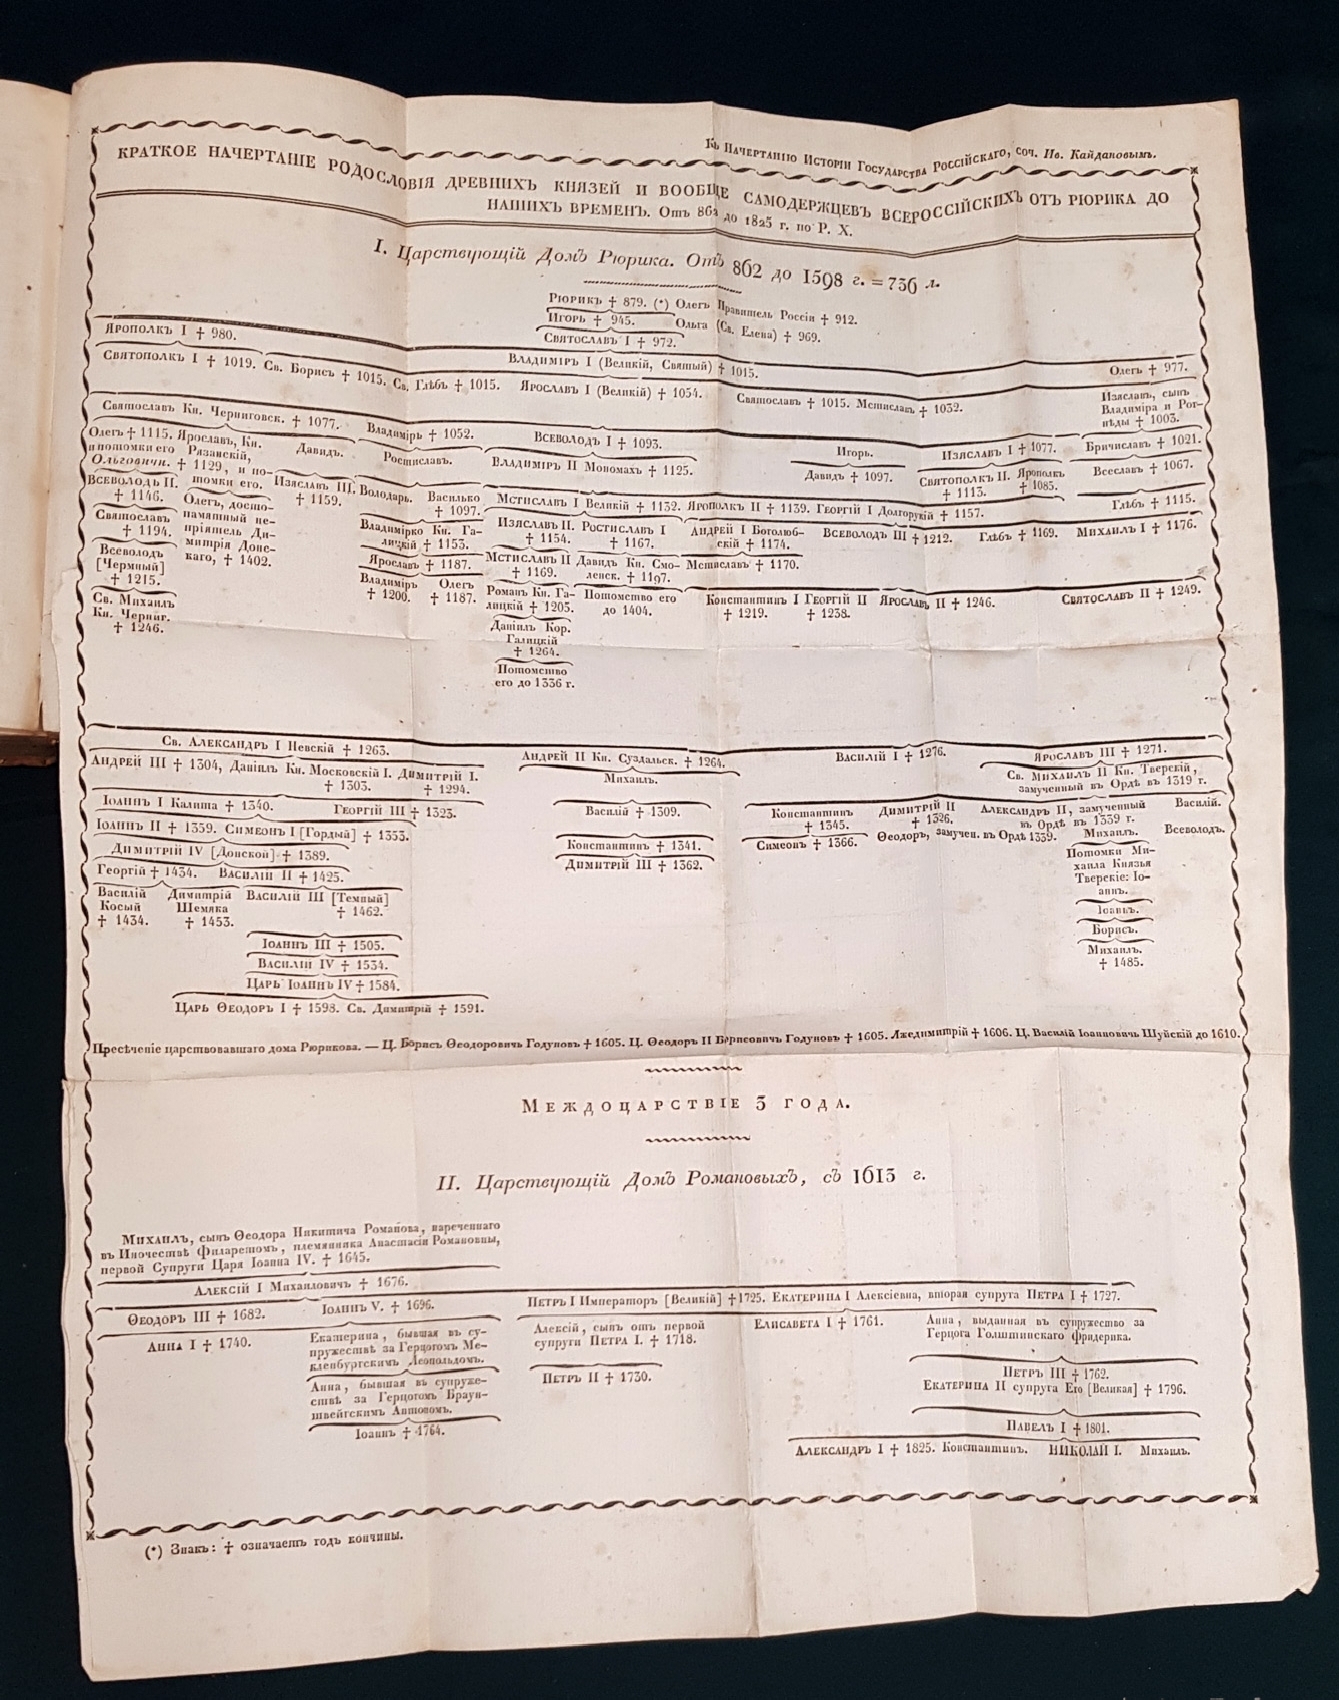 Къ Начертанію Исторіи Государства Россійскаго, соч. Ив. Кайдановымъ.
КРАТКОЕ НАЧЕРТАНІЕ РОДОСЛОВІЯ ДРЕВНИХЪ КНЯЗЕЙ И ВООБЩЕ САМОДЕРЖЦЕВЪ ВСЕРОССІЙСКИХЪ ОТЪ РЮРИКА ДО
НАШИХЪ ВРЕМЕНЪ. Отъ 862 до 1825 г. по Р. Х.
I. Царствующій Домъ Рюрика. Отъ 862 до 1598 г. = 736 л.
Рюрикъ † 879. (*) Олегъ Правитель Россіи † 912.
Игорь † 945. Ольга (Св. Елена) † 969.
Святославъ I † 972.
Ярополкъ I † 980.
Владиміръ I (Великій, Святый) † 1015.
Олегъ † 977.
Святополкъ I † 1019. Св. Борисъ † 1015. Св. Глѣбъ † 1015. Ярославъ I (Великій) † 1054.
Святославъ † 1015. Мстиславъ † 1032.
Изяславъ, сынъ
Владиміра и Рог-
нѣды † 1003.
Святославъ Кн. Черниговск. † 1077.
Владиміръ † 1052.
Всеволодъ I † 1093.
Игорь.
Изяславъ I † 1077.
Бричиславъ † 1021.
Олегъ † 1115,
и потомки его
Ольговичи.
Ярославъ, Кн.
Рязанскій,
† 1129, и по-
томки его.
Давидъ.
Ростиславъ.
Владиміръ II Мономахъ † 1125.
Давидъ † 1097.
Святополкъ II.
† 1113.
Ярополкъ
† 1085.
Всеславъ † 1067.
Всеволодъ II.
† 1146.
Олегъ, досто-
памятный не-
пріятель Ди-
митрія Донс-
каго, † 1402.
Изяславъ III,
† 1159.
Володарь.
Василько
† 1097.
Мстиславъ I Великій † 1132. Ярополкъ II † 1139. Георгій I Долгорукій † 1157.
Глѣбъ † 1115.
Святославъ
† 1194.
Владимірко Кн. Га-
лицкій † 1153.
Изяславъ II.
† 1154.
Ростиславъ I
† 1167.
Андрей I Боголюб-
скій † 1174.
Всеволодъ III † 1212.
Глѣбъ † 1169.
Михаилъ I † 1176.
Всеволодъ
[Чермный]
† 1215.
Ярославъ † 1187.
Мстиславъ II
† 1169.
Давидъ Кн. Смо-
ленск. † 1197.
Мстиславъ † 1170.
Св. Михаилъ
Кн. Черниг.
† 1246.
Владиміръ
† 1200.
Олегъ
† 1187.
Романъ Кн. Га-
лицкій † 1205.
Потомство его
до 1404.
Константинъ I
† 1219.
Георгій II
† 1238.
Ярославъ II † 1246.
Святославъ II † 1249.
Даніилъ Кор.
Галицкій
† 1264.
Потомство
его до 1336 г.
Св. Александръ I Невскій † 1263.
Андрей II Кн. Суздальск. † 1264.
Василій I † 1276.
Ярославъ III † 1271.
Андрей III † 1304, Даніилъ Кн. Московскій I. Димитрій I.
† 1303. † 1294.
Михаилъ.
Св. Михаилъ II Кн. Тверскій,
замученный въ Ордѣ въ 1319 г.
Іоаннъ I Калита † 1340. Георгій III † 1323.
Василій † 1309.
Константинъ
† 1345.
Димитрій II
† 1326.
Александръ II, замученный
въ Ордѣ въ 1339 г.
Василій.
Іоаннъ II † 1359. Симеонъ I [Гордый] † 1353.
Константинъ † 1341.
Симеонъ † 1366.
Ѳеодоръ, замучен. въ Ордѣ 1339.
Михаилъ.
Всеволодъ.
Димитрій IV [Донской] † 1389.
Димитрій III † 1362.
Потомки Ми-
хаила Князья
Тверскіе: Іо-
аннъ.
Георгій † 1434. Василій II † 1425.
Василій
Косый
† 1434.
Димитрій
Шемяка
† 1453.
Василій III [Темный]
† 1462.
Іоаннъ.
Борисъ.
Михаилъ.
† 1485.
Іоаннъ III † 1505.
Василій IV † 1534.
Царь Іоаннъ IV † 1584.
Царь Ѳеодоръ I † 1598. Св. Димитрій † 1591.
Пресѣченіе царствовавшаго дома Рюрикова. — Ц. Борисъ Ѳеодоровичъ Годуновъ † 1605. Ц. Ѳеодоръ II Борисовичъ Годуновъ † 1605. Лжедимитрій † 1606. Ц. Василій Іоанновичъ Шуйскій до 1610.
Междоцарствіе 3 года.
II. Царствующій Домъ Романовыхъ, съ 1613 г.
Михаилъ, сынъ Ѳеодора Никитича Романова, нареченнаго
въ Иночествѣ Филаретомъ, племянника Анастасіи Романовны,
первой Супруги Царя Іоанна IV. † 1645.
Алексій I Михаиловичъ † 1676.
Ѳеодоръ III † 1682.
Іоаннъ V. † 1696.
Петръ I Императоръ [Великій] † 1725. Екатерина I Алексіевна, вторая супруга Петра I † 1727.
Анна I † 1740.
Екатерина, бывшая въ су-
пружествѣ за Герцогомъ Ме-
кленбургскимъ Леопольдомъ.
Алексій, сынъ отъ первой
супруги Петра I. † 1718.
Елисавета I † 1761.
Анна, выданная въ супружество за
Герцога Голштинскаго Фридерика.
Анна, бывшая въ супруже-
ствѣ за Герцогомъ Браун-
швейгскимъ Антономъ.
Петръ II † 1730.
Петръ III † 1762.
Екатерина II супруга Его [Великая] † 1796.
Іоаннъ † 1764.
Павелъ I † 1801.
Александръ I † 1825. Константинъ. НИКОЛАЙ I. Михаилъ.
(*) Знакъ: † означаетъ годъ кончины.